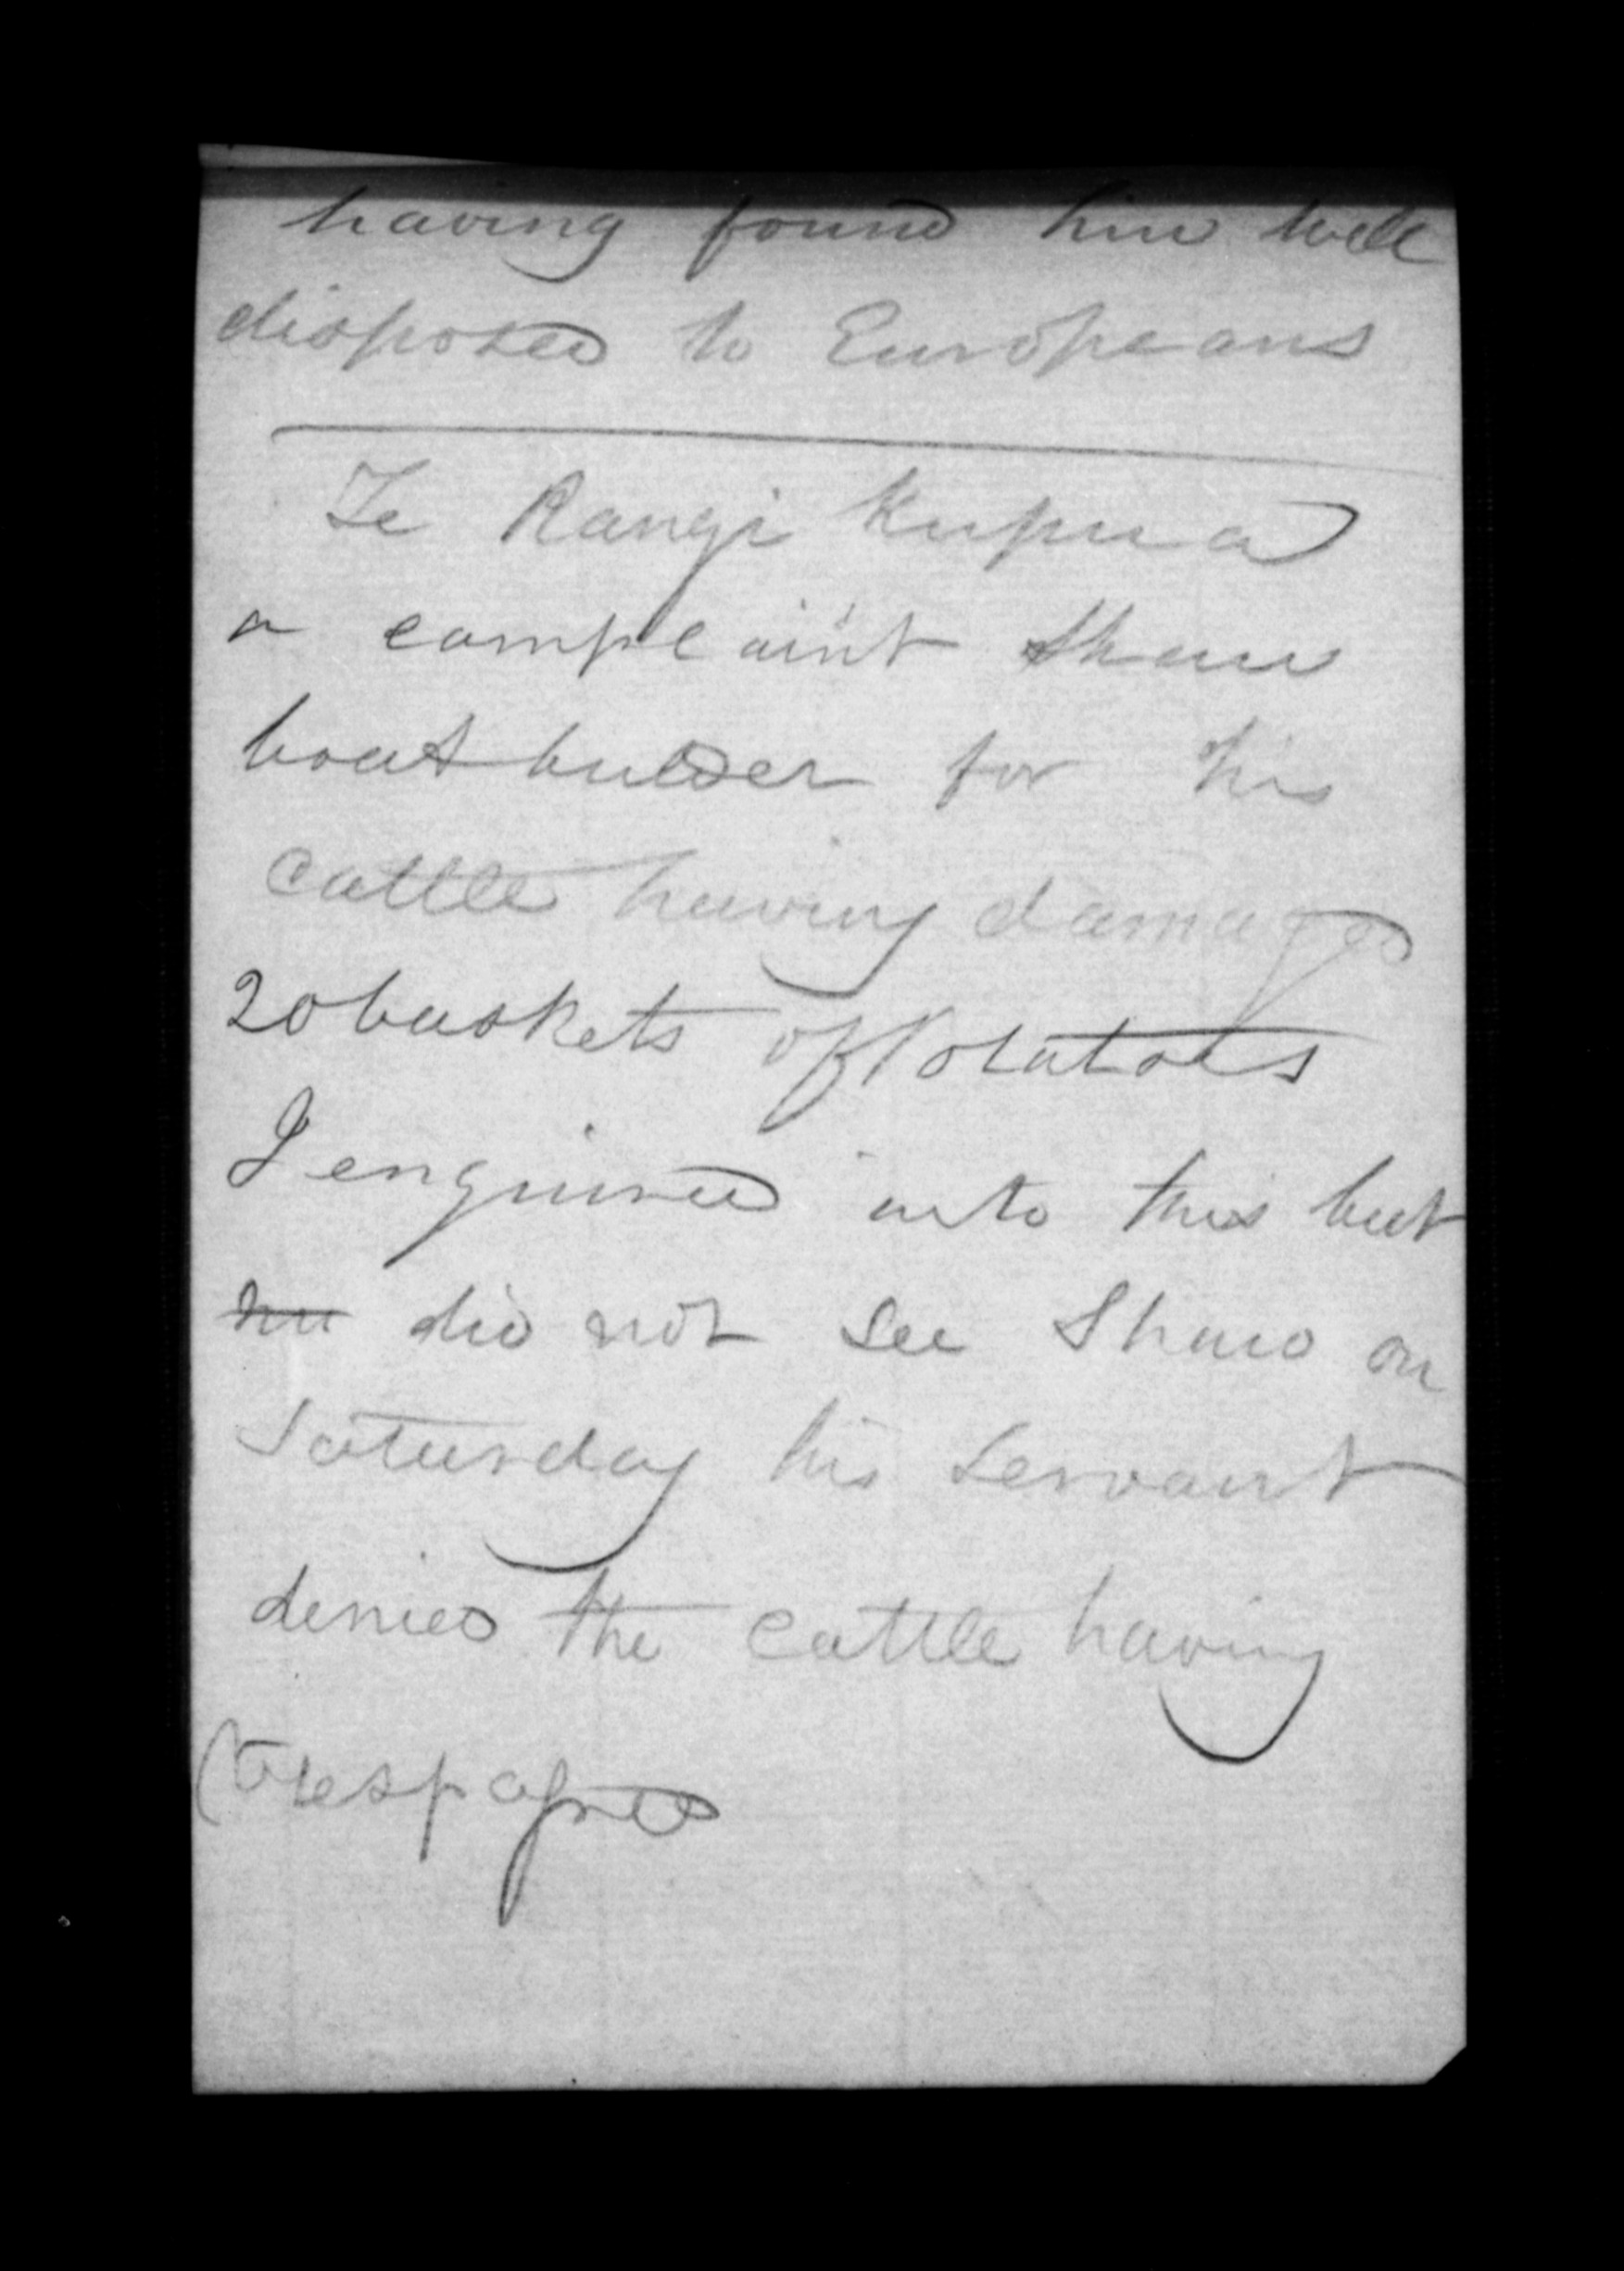 having found him well
disposed to Europeans
Te Rangi Kupua
a complaint Shaw
boat builder for his
cattle having damaged
20 baskets of Potatoes
I enquired into this but
did not see Shaw on
Saturday his Servant
denies the cattle having
trespassed